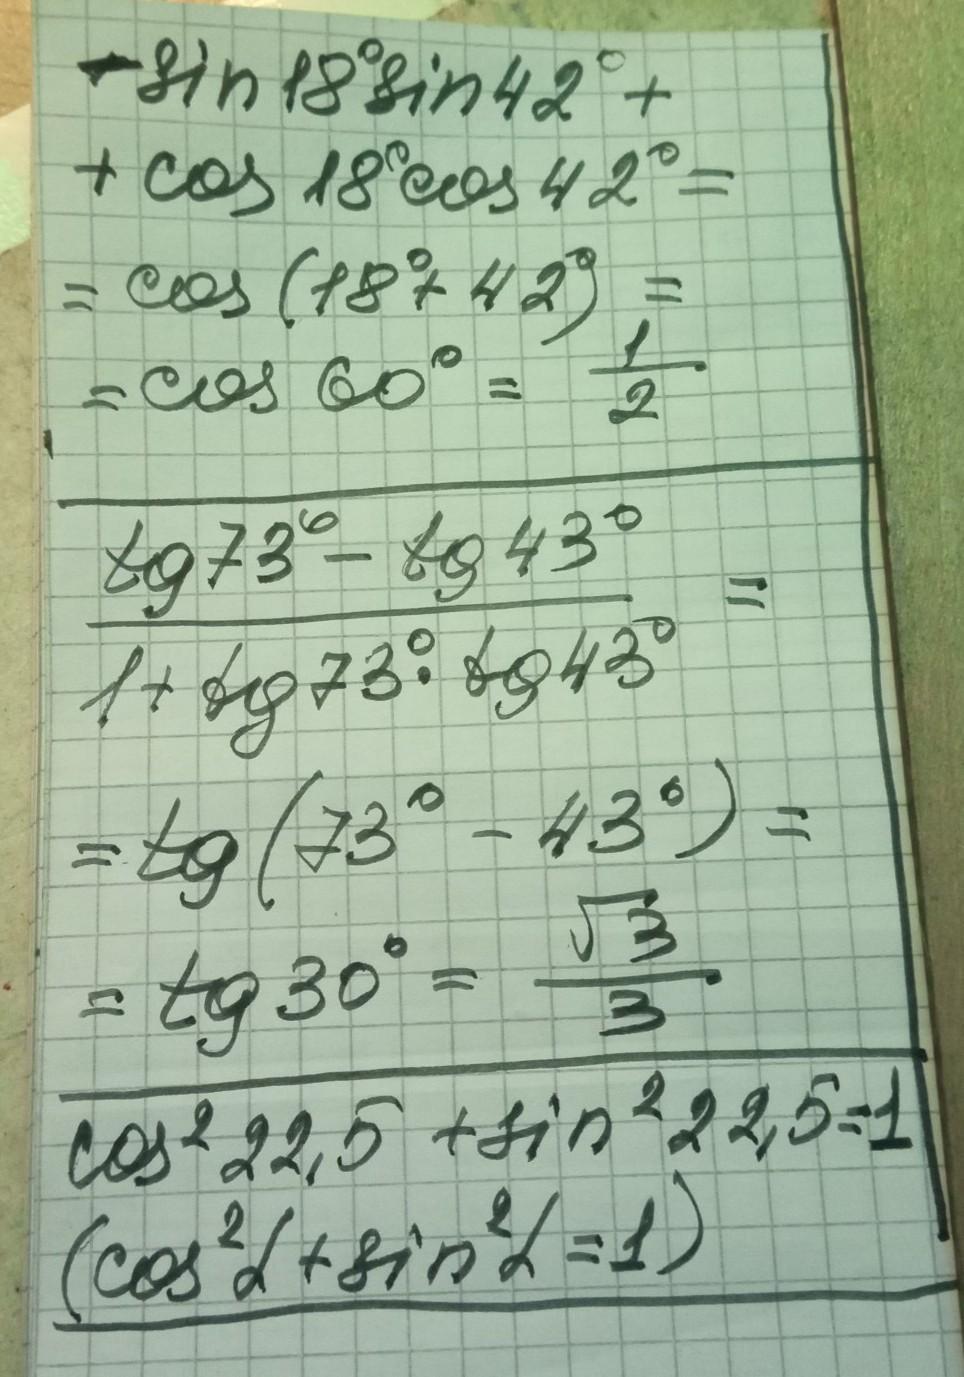 - sin 18° sin 42° +
+ cos 18° cos 42° =
= cos (18° + 42°) =
= cos 60° = 1/2
(tg 73° - tg 43°) / (1 + tg 73° · tg 43°) =
= tg (73° - 43°) =
= tg 30° = √3/3
cos² 22,5 + sin² 22,5 = 1
(cos² α + sin² α = 1)